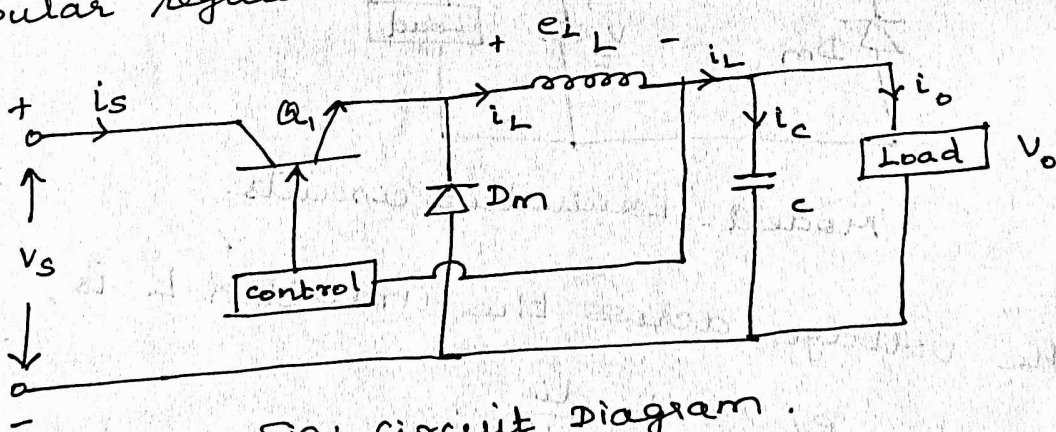 + eL L -
+ is Q1 iL iL io
ic
Load Vo
Dm
C
Vs
control
-
Fig: Circuit Diagram.